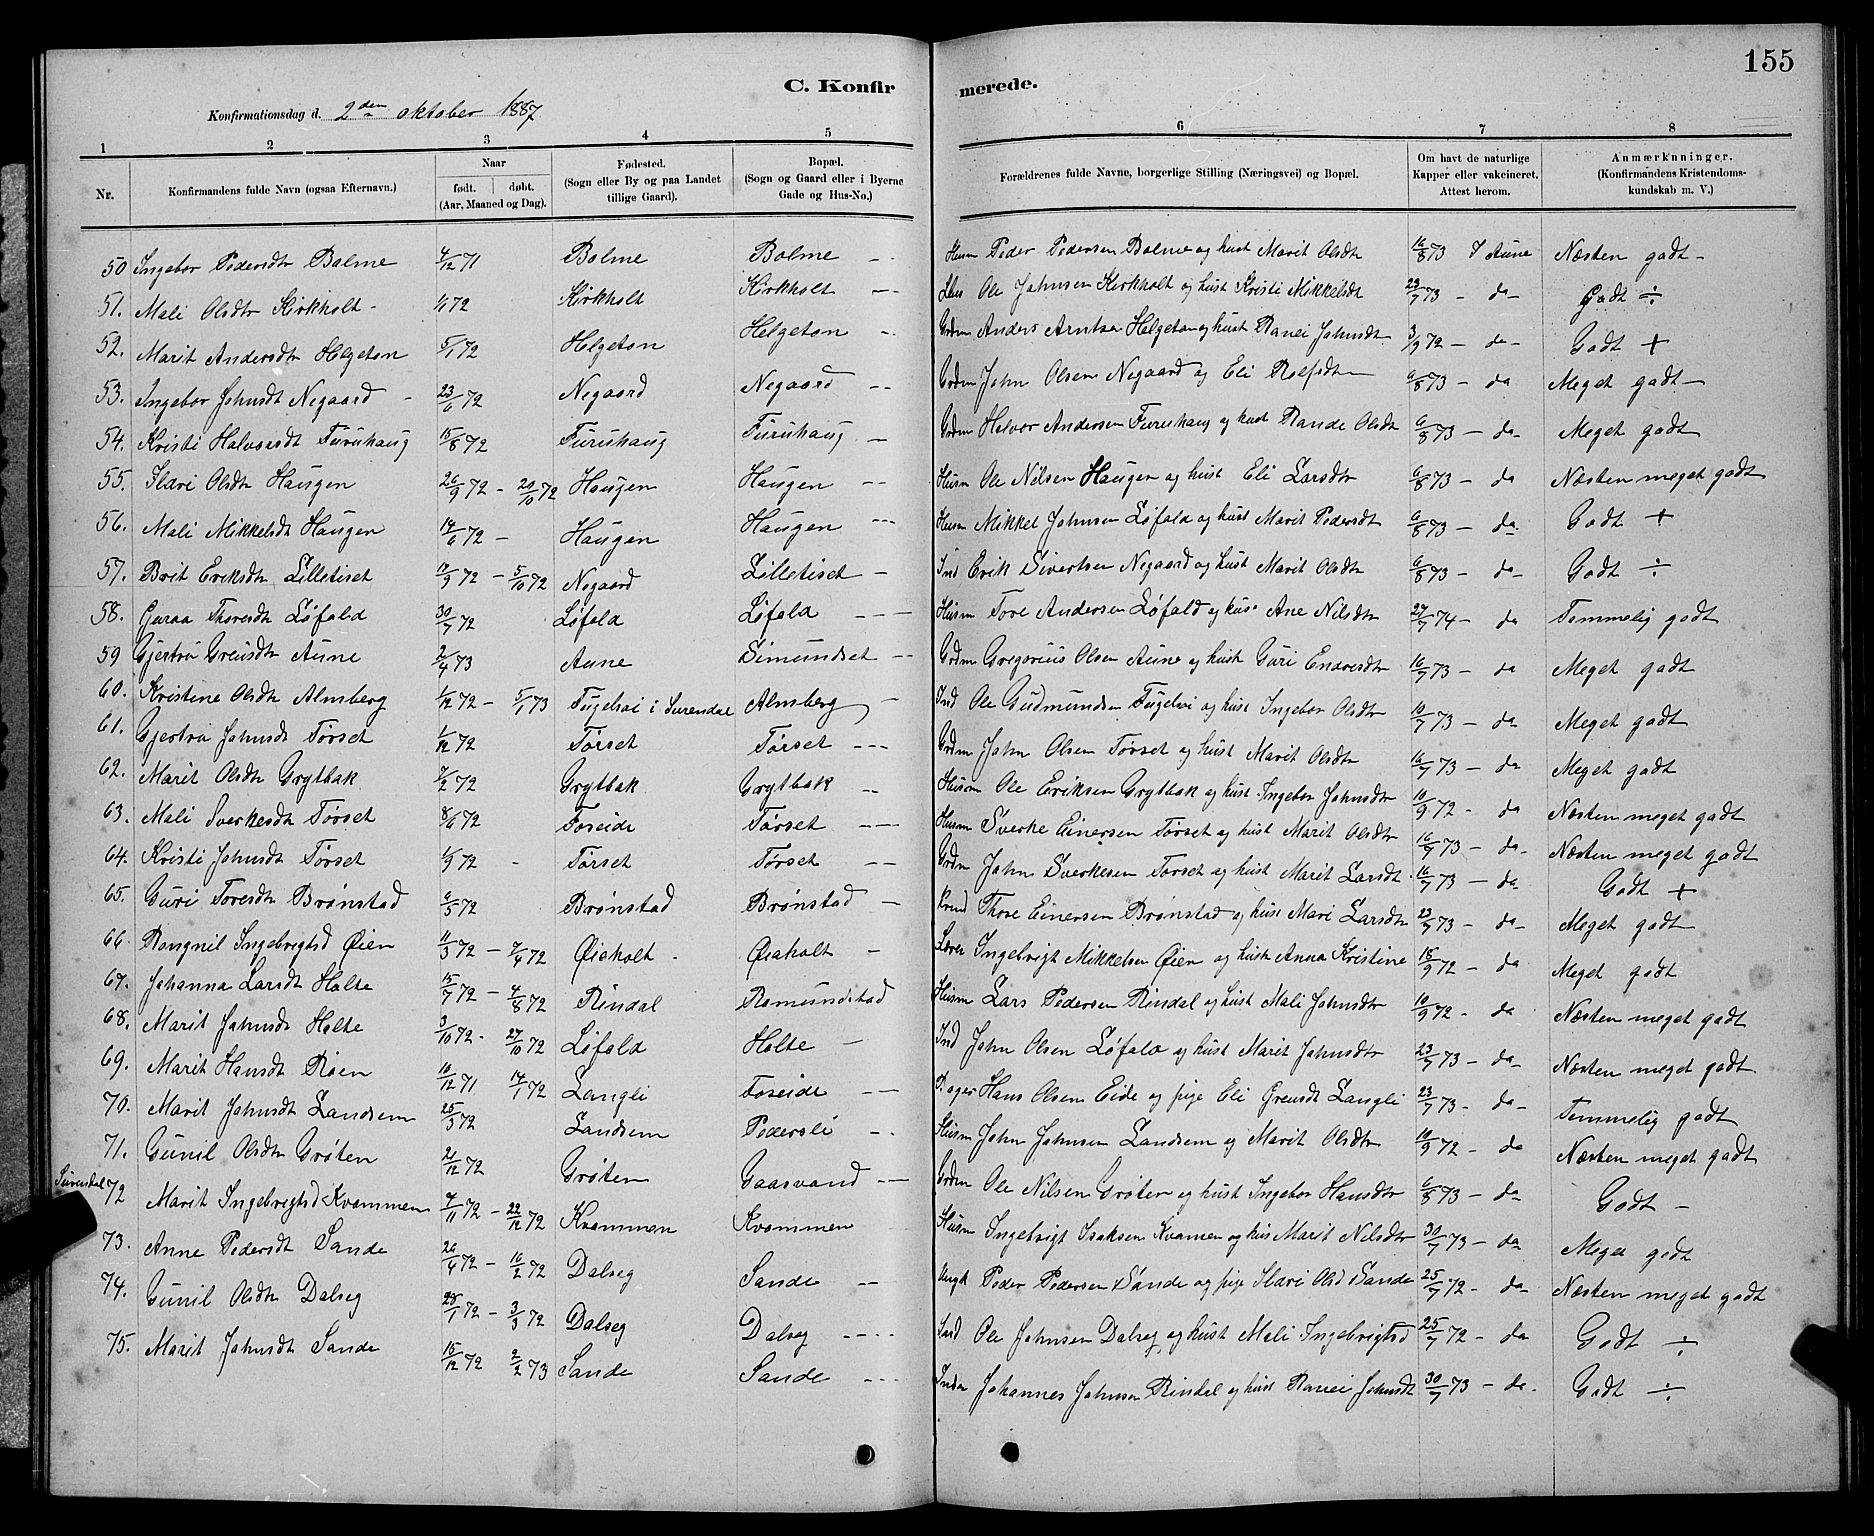 155
C. Konfirmerede.
Konfirmationsdag d. 2den oktober 1887
1 2 3 4 5 6 7 8
Nr. Konfirmandens fulde Navn (ogsaa Efternavn.) Naar født. døbt. (Aar, Maaned og Dag). Fødested. (Sogn eller By og paa Landet tillige Gaard). Bopæl. (Sogn og Gaard eller i Byerne Gade og Hus-No.) Forældrenes fulde Navne, borgerlige Stilling (Næringsvei) og Bopæl. Om havt de naturlige Kapper eller vakcineret. Attest herom. Anmærknninger. (Konfirmandens Kristendomskundskab m. V.)
50 Ingebor Pedersdtr Bolme 4/12 71 Bolme Bolme -- Husm Peder Pedersen Bolme og hust Marit Olsdt 16/8 73 I Aune Næsten godt -
51. Mali Olsdtr Kirkholt - 72 Kirkholt Kirkholt -- Ole Johnsen Kirkholt og hust Kristi Mikkelsdt 23/7 73 - da - Godt ÷
52. Marit Andersdtr Helgeton 5/1 72 Helgeton Helgeton -- Grdm Anders Arntsen Helgeton og hust Ranei Johnsdt 3/9 72 - da - Godt +
53. Ingebor Johnsdt Negaard - 23/6 72 Negaard Negaard -- Grdm John Olsen Negaard og Eli Rolfsdt 6/8 73 - da Meget godt -
54. Kristi Halvorsdt Furuhaug 15/8 72 Furuhaug Furuhaug - Grdm Halvor Andersen Furuhaug og hust Rande Olsdt 6/8 73 - da - Meget godt
55. Sldri Olsdtr Haugen 26/9 72 - 20/10 72 Haugen Haugen -- Husm Ole Nilsen Haugen og hust Eli Larsdtr 6/8 73 - da Næsten meget godt
56. Mali Mikkelsdt Haugen 14/6 72 - Haugen Haugen --- Husm Mikkel Johnsen Løfald og hust Marit Pedersdt 6/8 73 - da Godt +
57. Brit Eriksdtr Lilletiset 17/9 72 - 5/10 72 Negaard Lilletiset - Ind Erik Sivertsen Negaard og hust Marit Olsdtr 6/8 73 - da - Godt ÷
58. Guraa Thoresdt Løfald 30/7 72 Løfald Løfald --- Husm Tore Andersen Løfald og hus Ane Nilsdtr 27/7 74 - da Temmelig godt
59 Gjertru Greiisdtr Aune 2/4 73 Aune Simundset -- Grdm Gregorius Olsen Aune og hust Guri Endresdtr 16/7 73 - da Meget godt
60. Kristine Olsdt Almberg 1/12 72 - 5/1 73 Fugelsøi i Surendal Almberg - Ind Ole Gudmundsen Fugelsøi og hust Ingebor Olsdtr 16/7 73 - da Meget godt
61. Gjertru Johnsdt Tørset 1/12 72 Tørset Tørset --- Grdm John Olsen Tørset og hust Marit Olsdtr 16/7 73 - da Meget godt
62. Marit Olsdtr Grytbak 7/2 72 Grytbak Grytbak -- Husm Ole Eriksen Grytbak og hust Ingebor Johnsdtr 10/9 72 - da Næsten meget godt
63. Mali Sverkesdt Tørset 8/6 72 Foseide Tørset --- Husm Sverke Einersen Tørset og hust Marit Olsdtr 16/7 73 - da - Næsten meget godt
64. Kristi Johnsdt Tørset 72 - Tørset Tørset -- Grdm John Sverkesen Tørset og hust Marit Larsdt. 16/7 73 - da Godt +
65. Guri Toresdt Brønstad 6/5 72 Brønstad Brønstad - Thore Einersen Brønstad og hust Mari Larsdtr 23/7 73 - da - Meget godt
66. Rangnil Ingebrigtsd Øien 11/3 72 - 7/4 72 Øiaholt - Øiaholt - Lærer Ingebrigt Mikkelsen Øien og hust Anna Kristine 18/9 72 - da Meget godt
67. Johanna Larsdt Holte 15/7 72 - 4/8 72 Rindal Romundstad Husm Lars Pedersen Rindal og hust Mali Johnsdtr 10/9 72 - da Næsten meget godt
68. Marit Johnsdt Holte 3/10 72 - 27/10 72 Løfald Holte - Ind John Olsen Løfald og hust Marit Johnsdtr 23/7 73 - da Næsten meget godt
69. Marit Hansdt Røen 10/12 71 14/7 72 Langli Foseide -- Hans Olsen Eide og pige Eli Greusdt Langli 23/7 73 - da - Temmelig godt
70. Marit Johnsdt Landsem 25/3 72 Landsem Pedersli -- Husm John Johnsen Landsem og Marit Olsdtr 10/9 72 - da Næsten meget godt
71. Gunil Olsdtr Grøten 21/12 72 Grøten Gaasvand -- Grdm Ole Nilsen Grøten og hust Ingebor Hansdtr 6/8 73 - da Godt -
Surendal 72 Marit Ingebrigtsd Kvammen 4/11 72 - 22/12 72 Kvammen Kvammen Husm Ingebrigt Isaksen Kvamen og hus Marit Nilsdtr 30/7 73 - da Meget godt
73. Anne Pedersdt Sande 26/4 72 - 16/2 72 Dalseg Sande -- Ungk Peder Pedersen Sande og pige Sldri Olsd Sande 25/7 72 - da - Næsten meget godt
74. Gunil Olsdtr Dalseg 28/1 72 - 3/3 72 Dalseg Dalseg ---- Ind Ole Johnsen Dalseg og hust Mali Ingebrigtsd 25/7 72 - da Godt ÷
75. Marit Johnsdt Sande 15/12 72 2/2 73 Sande Sande --- Johannes Johnsen Rindal og hust Ranei Johnsdt 30/7 73 - da. Godt ÷